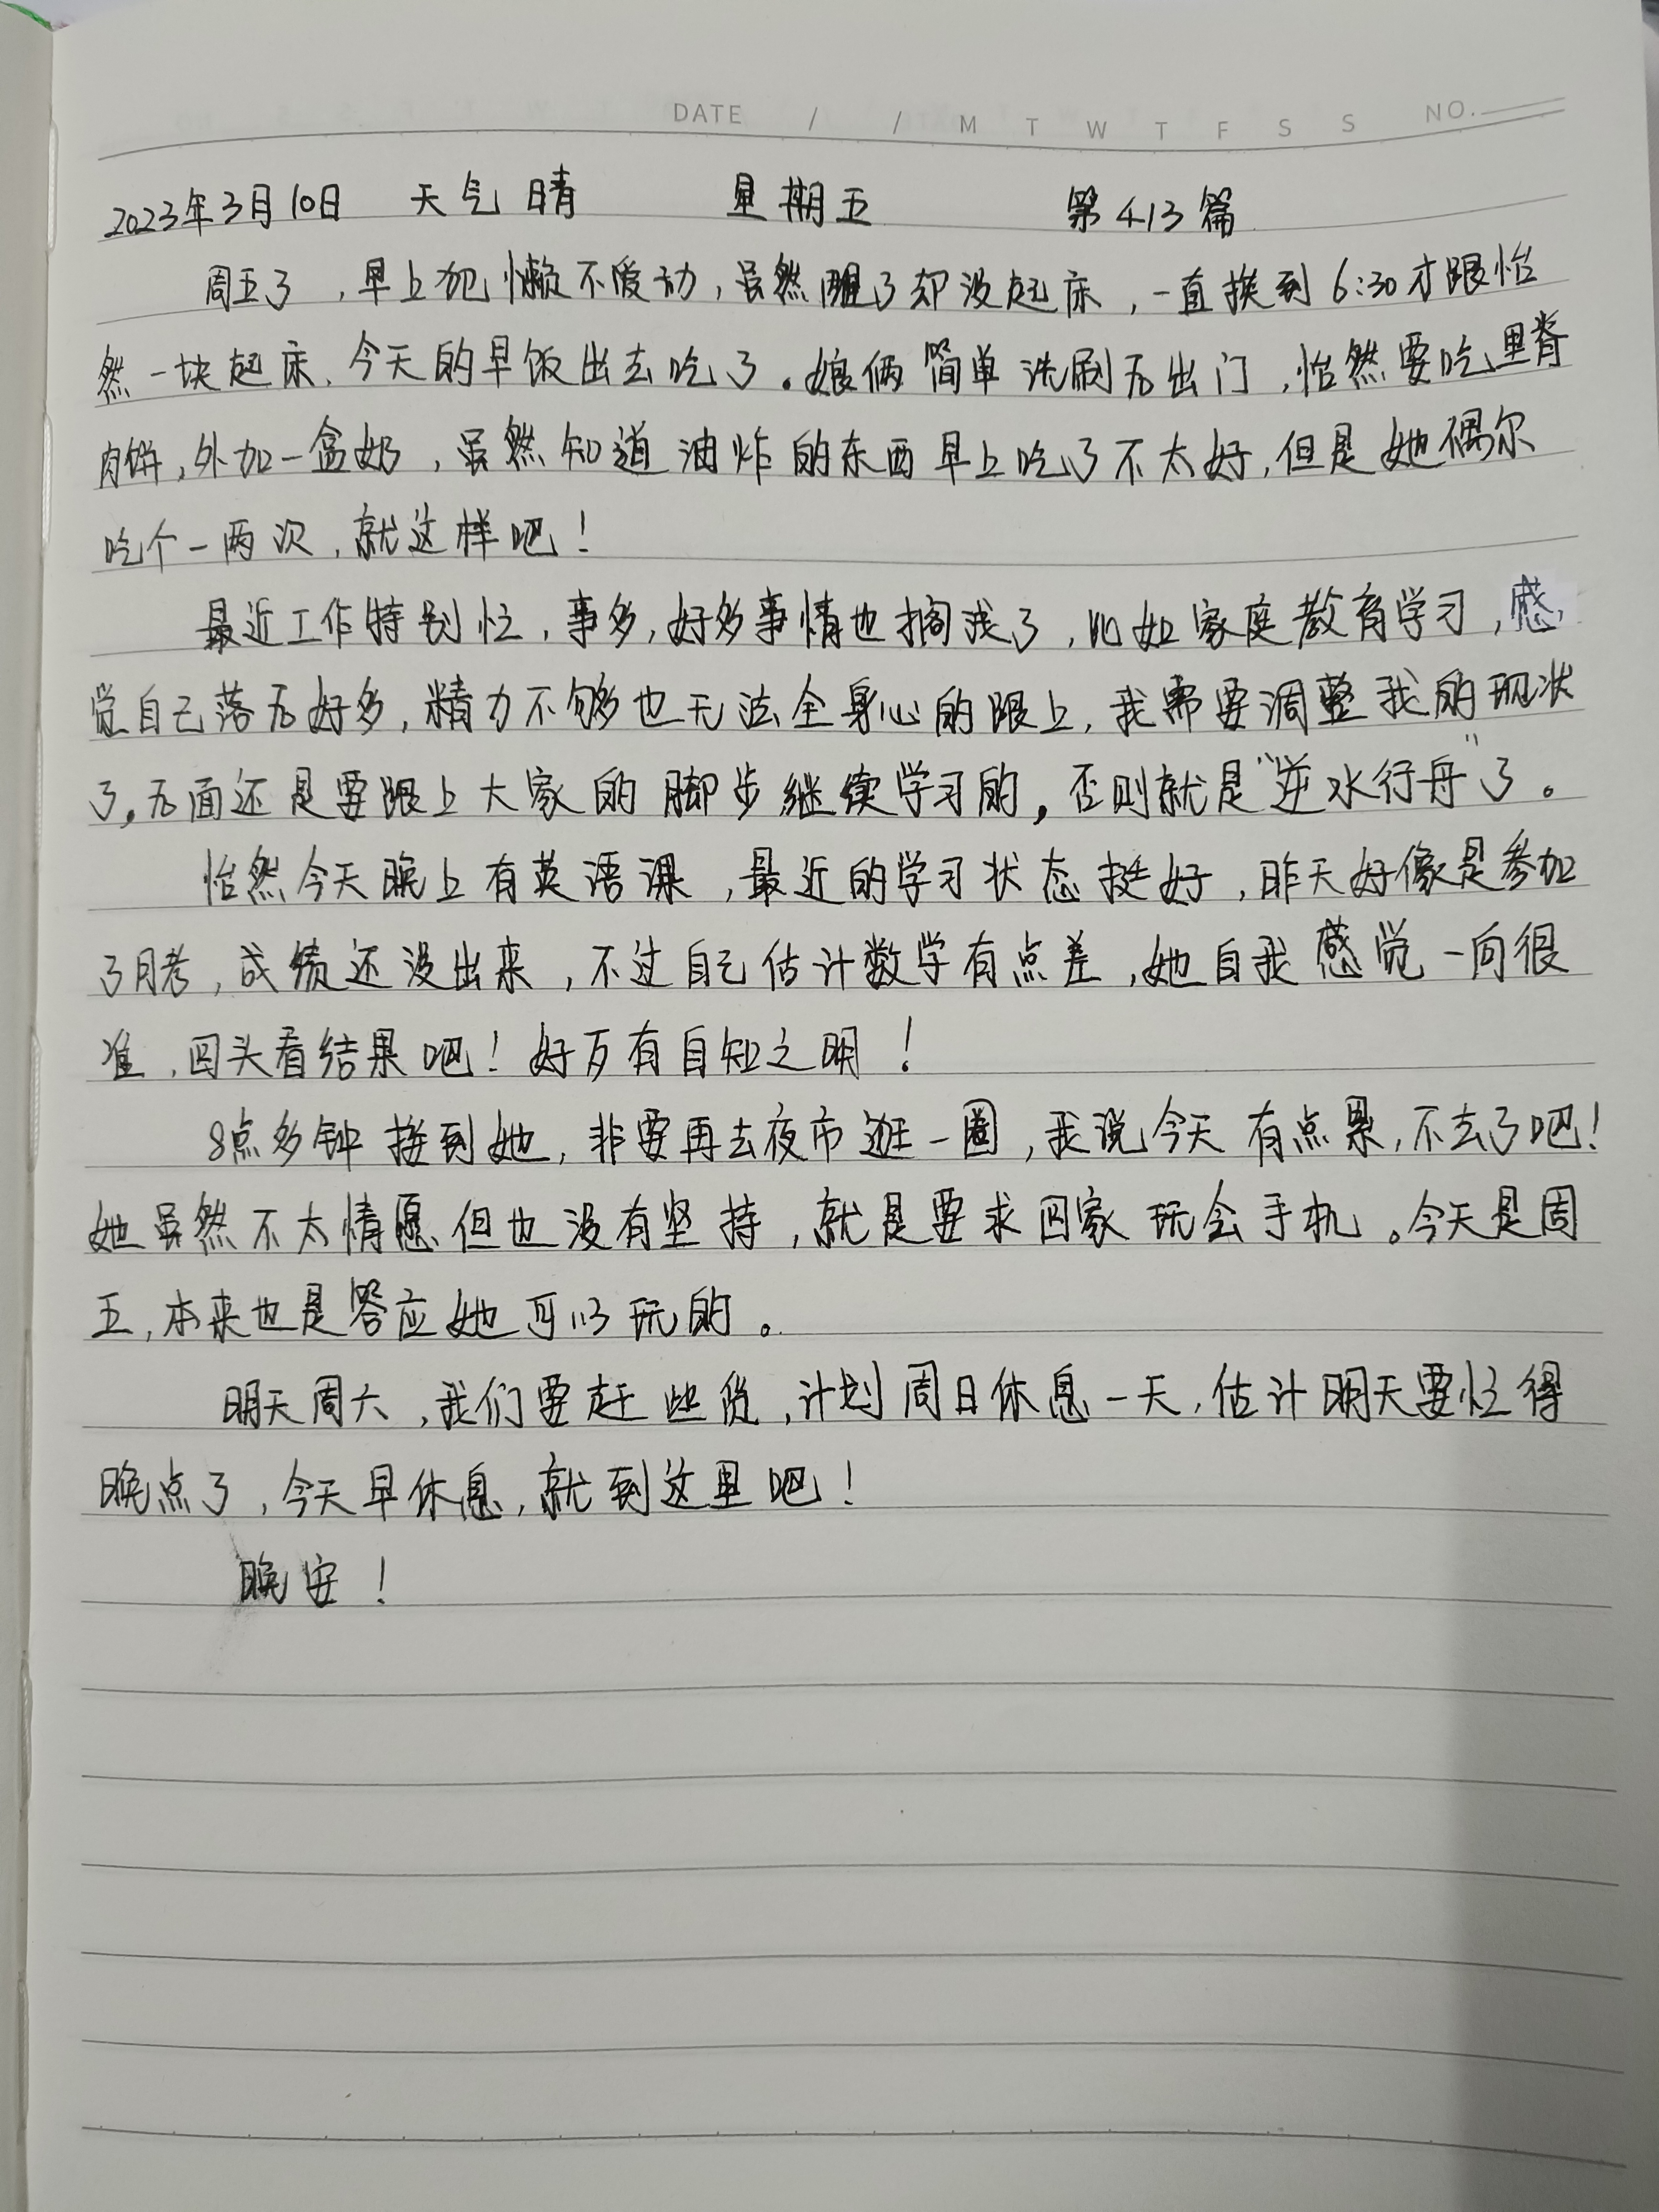 DATE / / M T W T F S S NO.
2023年3月10日 天气晴 星期五 第413篇
周五了，早上犯懒不爱动，虽然醒了却没起床，一直挨到6:30才跟怡
然一块起床、今天的早饭出去吃了。娘俩简单洗刷后出门，怡然要吃里脊
肉饼，外加一盒奶，虽然知道油炸的东西早上吃了不太好，但是她偶尔
吃个一两次，就这样吧！
最近工作特别忙，事多，好多事情也搁浅了，比如家庭教育学习，感
觉自己落后好多，精力不够也无法全身心的跟上，我需要调整我的现状
了。后面还是要跟上大家的脚步继续学习的，否则就是“逆水行舟”了。
怡然今天晚上有英语课，最近的学习状态挺好，昨天好像是参加
了月考，成绩还没出来，不过自己估计数学有点差，她自我感觉一向很
准，回头看结果吧！好歹有自知之明！
8点多钟接到她，非要再去夜市逛一圈，我说今天有点累，不去了吧！
她虽然不太情愿、但也没有坚持，就是要求回家玩会手机。今天是周
五，本来也是答应她可以玩的。
明天周六，我们要赶些货，计划周日休息一天，估计明天要忙得
晚点了，今天早休息，就到这里吧！
晚安！